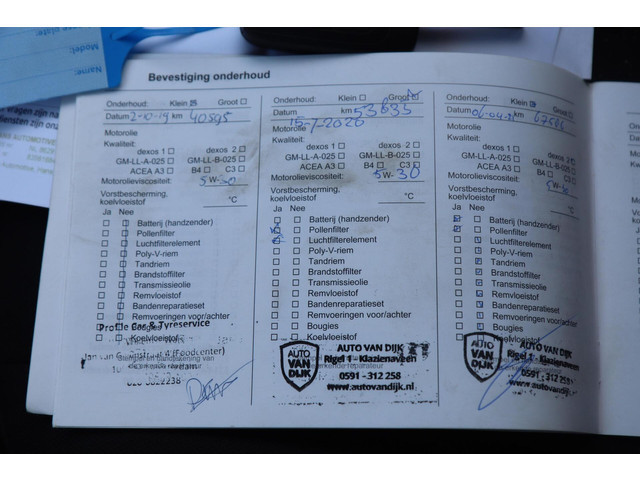 Model:
Name:
Bevestiging onderhoud
Onderhoud: Klein Groot
Datum 2-10-19 km 40895
Motorolie
Kwaliteit:
dexos 1 dexos 2
GM-LL-A-025 GM-LL-B-025
ACEA A3 B4 C3
Motorolieviscositeit: 5W-30
Vorstbescherming,
koelvloeistof °C
Ja Nee
Batterij (handzender)
Pollenfilter
Luchtfilterelement
Poly-V-riem
Tandriem
Brandstoffilter
Transmissieolie
Remvloeistof
Bandenreparatieset
Remvoeringen voor/achter
Bougies
Koelvloeistof
Profile Car & Tyreservice
Onderhoud: Klein Groot
Datum 15-7-2020 km 53835
Motorolie
Kwaliteit:
dexos 1 dexos 2
GM-LL-A-025 GM-LL-B-025
ACEA A3 B4 C3
Motorolieviscositeit: 5W-30
Vorstbescherming,
koelvloeistof °C
Ja Nee
Batterij (handzender)
Pollenfilter
Luchtfilterelement
Poly-V-riem
Tandriem
Brandstoffilter
Transmissieolie
Remvloeistof
Bandenreparatieset
Remvoeringen voor/achter
Bougies
Koelvloeistof
AUTO VAN DIJK
AUTO VAN DIJK
Rigel 1 - Klazienaveen
0591 - 312 258
www.autovandijk.nl
Onderhoud: Klein Groot
Datum km
Motorolie
Kwaliteit:
dexos 1 dexos 2
GM-LL-A-025 GM-LL-B-025
ACEA A3 B4 C3
Motorolieviscositeit: 5W-30
Vorstbescherming,
koelvloeistof °C
Ja Nee
Batterij (handzender)
Pollenfilter
Luchtfilterelement
Poly-V-riem
Tandriem
Brandstoffilter
Transmissieolie
Remvloeistof
Bandenreparatieset
Remvoeringen voor/achter
Bougies
Koelvloeistof
AUTO VAN DIJK
AUTO VAN DIJK
Rigel 1 - Klazienaveen
0591 - 312 258
www.autovandijk.nl